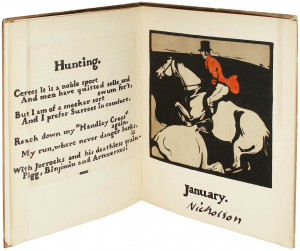 Hunting.
Certes it is a noble sport
And men have quitted selle and
swum for't,
But I am of a meeker sort
And I prefer Surtees in comfort.
Reach down my "Handley Cross"
again,
My run, where never danger lurks, is
With Jorrocks and his deathless train—
Pigg, Binjimin and Artexerxes!
January.
Nicholson